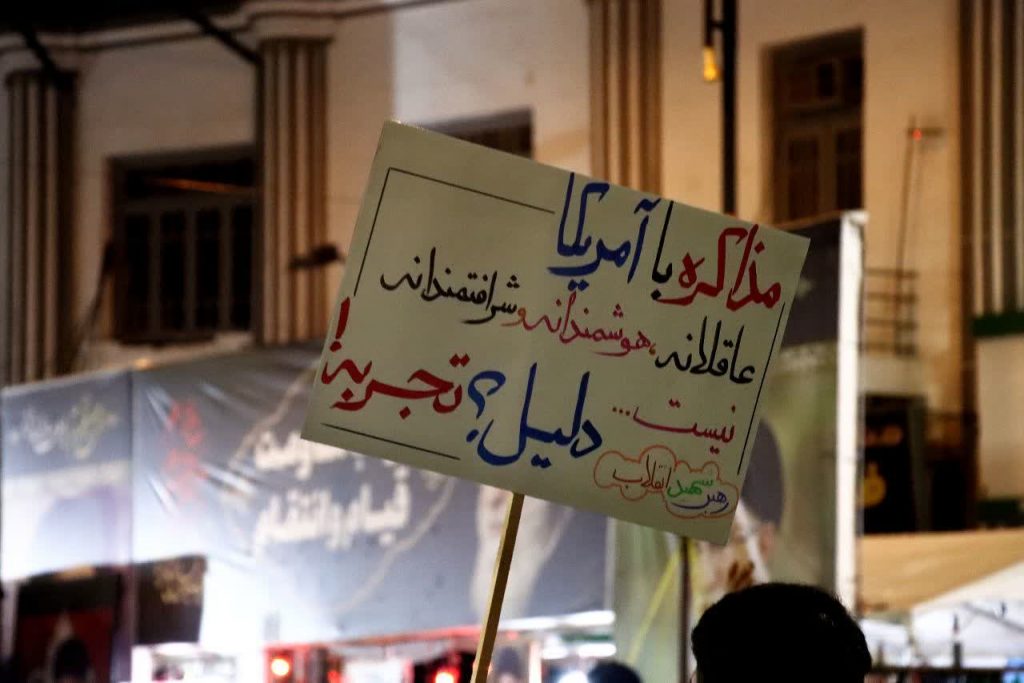 مذاکره با آمریکا
عاقلانه، هوشمندانه و شرافتمندانه
نیست...
دلیل؟ تجربه!
رهبر شهید انقلاب
قیام و انتقام